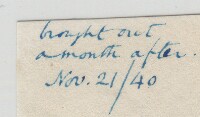 brought out
a month after.
Nov. 21/40